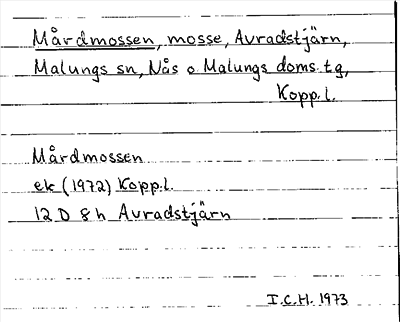 Mårdmossen, mosse, Avradstjärn,
Malungs sn, Nås o Malungs doms.tg,
Kopp.l.
Mårdmossen
ek (1972) Kopp.l.
12 D 8 h Avradstjärn
I.C.H. 1973